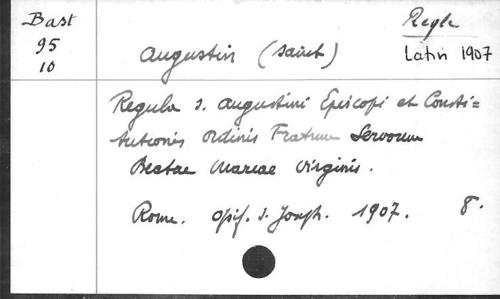 Bast
95
10
Regle
Latin 1907
Augustin (saint)
Regula s. Augustini Episcopi et Consti=
tutiones ordinis Fratrum Servorum
Beatae Mariae Virginis.
Rome. Opif. s. Joseph. 1907. 8°.